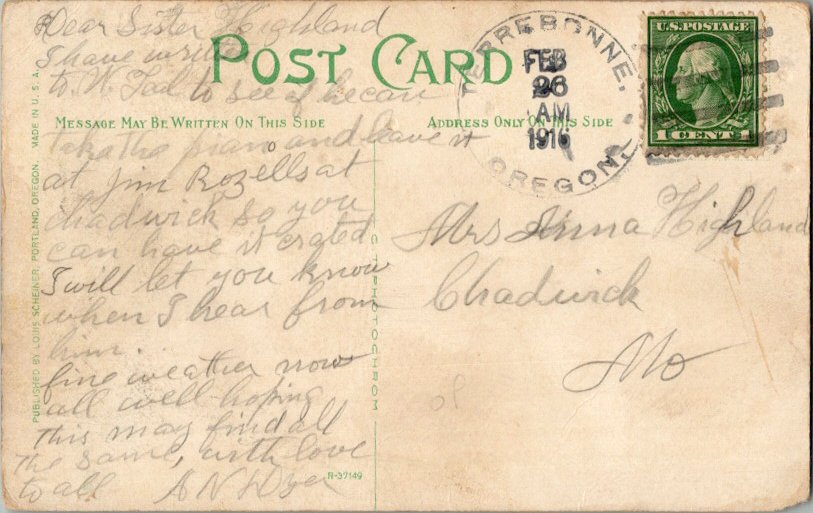 Dear Sister Highland
I have written
to W. Tad to see if he can
take the piano and leave it
at Jim Rozells at
Chadwick so you
can have it crated
I will let you know
when I hear from
him.
fine weather now
all well-hoping
this may find all
the same, with love
to all A N Dyer
POST CARD
MESSAGE MAY BE WRITTEN ON THIS SIDE
ADDRESS ONLY ON THIS SIDE
TERREBONNE,
FEB
26
AM
1916
OREGON.
U.S. POSTAGE
1 CENT 1
Mrs Anna Highland
Chadwick
Mo
PUBLISHED BY LOUIS SCHEINER, PORTLAND, OREGON. MADE IN U.S.A.
OCTOCHROM
R-37149